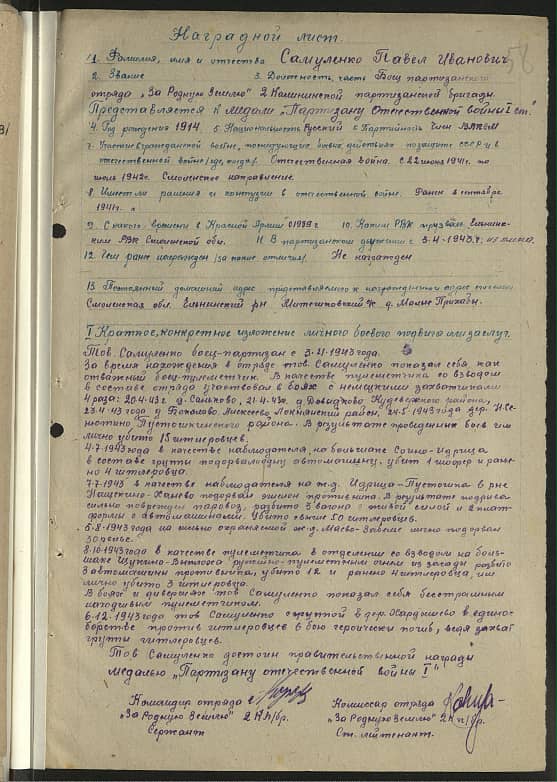 58
Наградной лист.
1. Фамилия, имя и отчество Самуленко Павел Иванович
2. Звание 3. Должность, часть Боец партизанского
отряда „За Родную Землю" 2 Калининской партизанской бригады.
Представляется к медали „Партизану Отечественной войны I ст."
4. Год рождения 1914. 5. Национальность Русский 6. Партийность Член ВЛКСМ
7. Участие в гражданской войне, последующих боевых действиях по защите СССР и в
отечественной войне /где, когда/. Отечественная война. С 22 июня 1941г. по
июль 1942г. Смоленское направление.
8. Имеет ли ранения и контузии в отечественной войне. Ранен в сентябре
1941г.
9. С какого времени в Красной Армии С 1939 г. 10. Каким РВК призван Ельнинс-
ким РВК Смоленской обл. 11. В партизанском движении с 3.4-1943г.
12. Чем ранее награжден /за какие отличия/. Не награжден
13. Постоянный домашний адрес представляемого к награждению и адрес
Смоленская обл. Ельнинский рн с д. Малые
I Краткое, конкретное изложение личного боевого подвига или заслуг.
Тов. Самуленко боец-партизан с 1943 года.
За время нахождения в отряде тов. Самуленко показал себя как
отважный боец-пулеметчик. В качестве пулеметчика со взводом
в составе отряда участвовал в боях с немецкими захватчиками
4 раза: 20.4-43 г. д. 21.4.43г. д. района,
23.4-43 года д. Алексеево Локнянский район, 24.5-1943 года дер.
Пустошкинского района. В результате проведенных боев им
лично убито 15 гитлеровцев.
4.7.1943 года в качестве наблюдателя, на большаке Сочно-Идрица
в составе группы подорвал одну автомашину, убит 1 шофер и ране-
но 4 гитлеровца.
7.7-1943 в качестве наблюдателя на ж.д. Идрица-Пустошка в рне
подорвал эшелон противника. В результате подрыва
сильно поврежден паровоз, разбито 3 вагона с живой силой и 2 плат-
формы с автомашинами. Убито свыше 50 гитлеровцев.
5-8-1943 года на сильно охраняемой ж.д. Маево-Забелье лично подорвал
30 рельс.
8.10.1943 года в качестве пулеметчика в отделении со взводом на боль-
шаке ружейно-пулеметным огнем из засады разбито
3 автомашины противника, убито 12 и ранено 4 гитлеровца, им
лично убито 3 гитлеровца.
В боях и диверсиях тов Самуленко показал себя бесстрашным
находчивым пулеметчиком.
6.12.1943 года тов Самуленко с группой в дер. в единое-
борстве против гитлеровцев в бою героически погиб, ведя захват
группы гитлеровцев.
Тов Самуленко достоин правительственной награды
медалью „Партизану отечественной войны I"
Командир отряда
„За Родную Землю" 2 КП/бр.
Сержант
Комиссар отряда
„За Родную Землю" 2 К п/бр.
Ст. лейтенант.